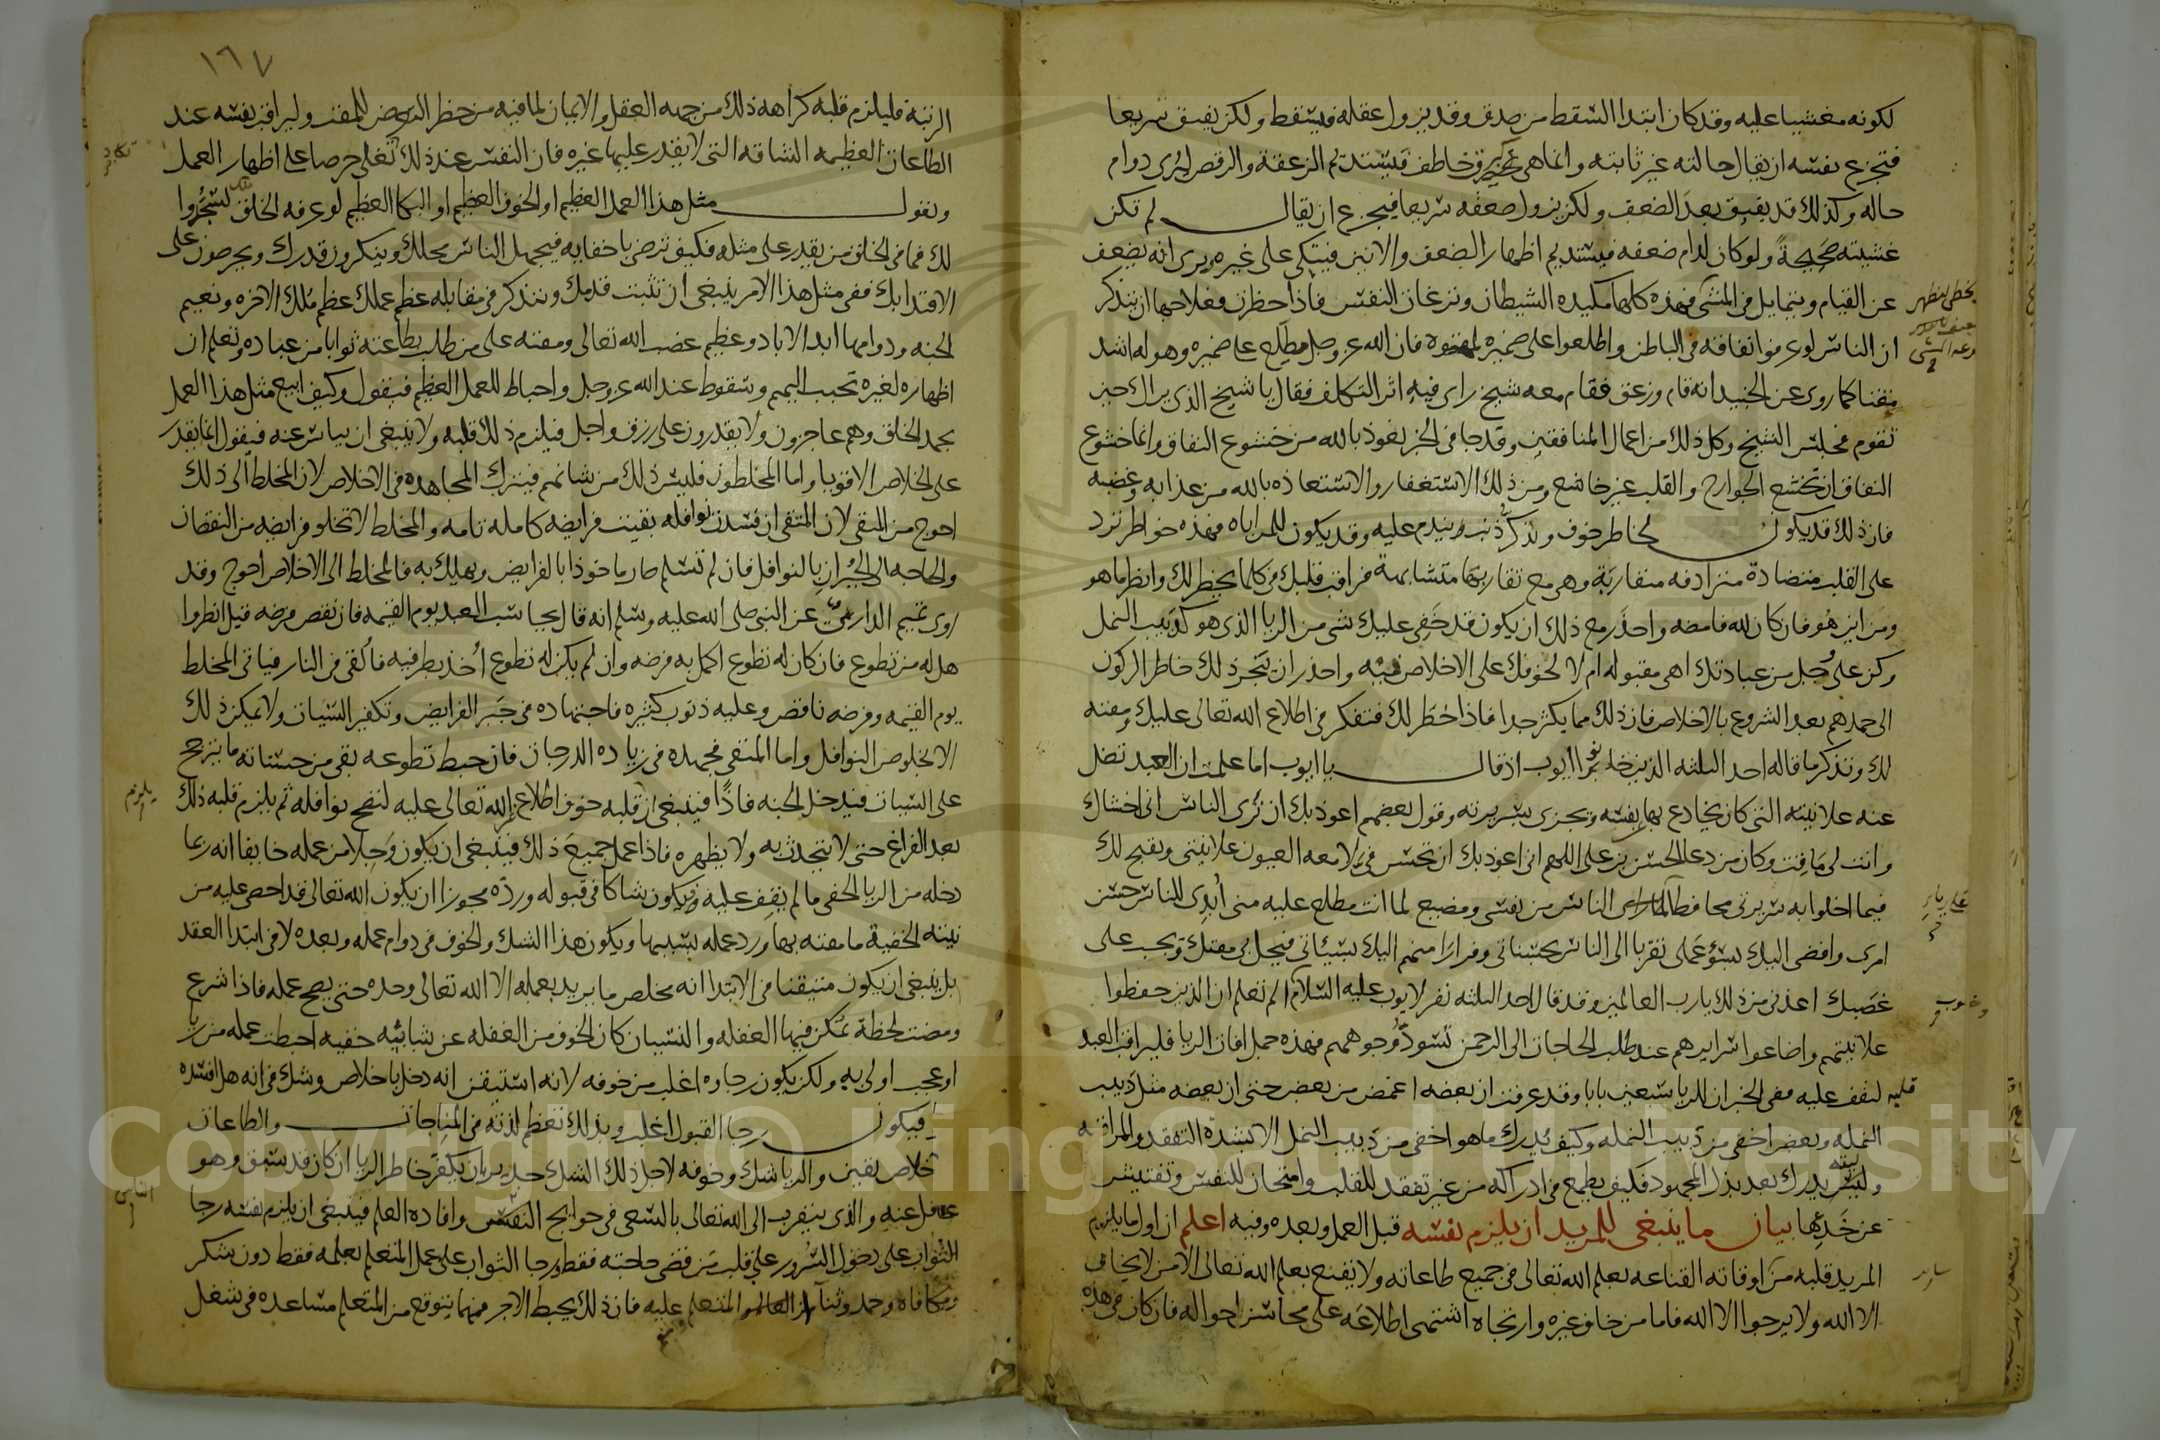 لكونه مغشيا عليه وقد كان ابتدا السقط من صدق وقد يزول عقله فيسقط ولكن يفيق سريعا
فتجزع نفسه ان يقال حالته غير ثابته وانما هي كبرق خاطف فيستديم الزعقة والرقص ليرى دوام
حاله وكذلك قد يفيق بعد الضعف ولكن يزول ضعفه سريعا فيجزع ان يقال لم تكن
غشيته صحيحة ولو كان لدام ضعفه فيستديم اظهار الضعف والانين فيتكي على غيره يرى انه يضعف
عن القيام ويتمايل في المشي فهذه كلها مكيده الشيطان ونزغات النفس فاذا خطرت فعلاجها ان يتذكر
ان الناس لو عرفوا نفاقه في الباطن واطلعوا على ضميره لمقتوه فان الله عز وجل مطلع على ضميره وهو له اشد
مقتا كما روى عن الجنيد انه قام وزعق فقام معه شيخ راى فيه اثر التكلف فقال يا شيخ الذي يراك حين
تقوم فجلس الشيخ وكل ذلك من اعمال المنافقين وقد جا في الخبر نعوذ بالله من خشوع النفاق وانما خشوع
النفاق ان تخشع الجوارح والقلب غير خاشع ومن ذلك الاستغفار والاستعاذه بالله من عذابه وغضبه
فان ذلك قد يكون لخاطر خوف وتذكر ذنب ويندم عليه وقد يكون للمراياه فهذه خواطر ترد
على القلب متضادة مترادفه متقاربة وهي مع تقاربها متشابهة فراقب قلبك في كلما يخطر لك وانظر ما هو
ومن اين هو فان كان لله فامضه واحذر مع ذلك ان يكون قد خفي عليك شي من الريا الذي هو كدبيب النمل
وكن على وجل من عبادتك اهي مقبوله ام لا لخوفك على الاخلاص فيه واحذر ان يتجرد لك خاطر الركون
الى حمدهم بعد الشروع بالاخلاص فان ذلك مما يكثر جدا فاذا خطر لك فتفكر في اطلاع الله تعالى عليك ومقته
لك وتذكر ما قاله احد الثلثه الذين حاجوا ايوب اذ قال يا ايوب اما علمت ان العبد تضل
عنه علانيته التي كان يخادع بها نفسه ويجزى بسريرته وقول بعضهم اعوذ بك ان ترى الناس اني اخشاك
وانت لي ماقت وكان من دعا علي بن الحسين اللهم اني اعوذ بك ان تحسن في لامعه العيون علانيتي وتقبح لك
فيما اخلوا به سريرتي محافظا على الناس من نفسي ومضيع لما انت مطلع عليه مني ابدي للناس حسن
امري وافضي اليك بسؤ عملي تقربا الى الناس بحسناتي وفرارا منهم اليك بسيئاتي فيحل بي مقتك ويجب على
غضبك اعذني من ذلك يا رب العالمين وقد قال احد الثلثه نفر لايوب عليه السلام الم تعلم ان الذين حفظوا
علانيتهم واضاعوا سرايرهم عند طلب الحاجات الى الرحمن تسود وجوههم فهذه جمل افات الريا فليراقب العبد
قلبه لتقف عليه ففي الخبر ان للريا سبعين بابا وقد عرفت ان بعضه اغمض من بعض حتى ان بعضه مثل دبيب
النمله وبعض اخفى من دبيب النمله وكيف يدرك ما هو اخفى من دبيب النمل الا بشدة التفقد والمراقبه
وليته يدرك بعد بذل المجهود فكيف يطمع في ادراكه من غير تفقد للقلب وامتحان للنفس وتفتيش
عن خدعها بيان ما ينبغي للمريد ان يلزم نفسه قبل العمل وبعده وفيه اعلم ان اول ما يلزم
المريد قلبه من اوقاته القناعه بعلم الله تعالى في جميع طاعاته ولا يقنع بعلم الله تعالى الا من لا يخاف
الا الله ولا يرجوا الا الله فاما من خاف غيره وارتجاه اشتهى اطلاعه على محاسن احواله فان كان في هذه
١٦٧
الرتبة فليلزم قلبه كراهة ذلك من جهه العقل والايمان لما فيه من خطر التعرض للمقت وليراقب نفسه عند
الطاعات العظيمه الشاقه التي لا يقدر عليها غيره فان النفس عند ذلك تغلي حرصا على اظهار العمل
وتقول مثل هذا العمل العظيم او الخوف العظيم او البكا العظيم لو عرفه الخلق منك لسجدوا
لك فما في الخلق من يقدر على مثله فكيف ترضى باخفايه فيجهل الناس محلك وينكرون قدرك ويحرصون على
الاقتدا بك ففي مثل هذا الامر ينبغي ان تثبت قدمك وتتذكر في مقابله عظم عملك عظم ملك الاخره ونعيم
الجنه ودوامها ابد الاباد وعظيم غضب الله تعالى ومقته على من طلب بطاعته ثوابا من عباده وتعلم ان
اظهاره لغيره تحبب اليهم وسقوط عند الله عز وجل واحباط للعمل العظيم فيقول وكيف ابيع مثل هذا العمل
بحمد الخلق وهم عاجزون ولا يقدرون على رزق واجل فيلزم ذلك قلبه ولا ينبغي ان يياس عنه فيقول انما يقدر
على الخلاص الاقويا واما المخلطون فليس ذلك من شانهم فيترك المجاهده في الاخلاص لان المخلط الى ذلك
احوج من المتقي لان المتقي ان فسدت نوافله بقيت فرايضه كامله تامه والمخلط لا تخلو فرايضه من النقصان
والحاجه الى الجبران بالنوافل فان لم تسلم صار ماخوذا بالفرايض ويهلك به فالمخلط الى الاخلاص احوج وقد
روى تميم الداري عن النبي صلى الله عليه وسلم انه قال يحاسب العبد يوم القيمه فان نقص فرضه قيل انظروا
هل له من تطوع فان كان له تطوع اكمل به فرضه وان لم يكن له تطوع اخذ بطرفيه فالقي في النار فياتي المخلط
يوم القيمه وفرضه ناقص وعليه ذنوب كثيره فاجتهاده في جبر الفرايض وتكفير السيات ولا يمكن ذلك
الا بخلوص النوافل واما المتقي فجهده في زياده الدرجات فان حبط تطوعه بقي من حسناته ما يترجح
على السيات فيدخل الجنه فاذا فينبغي ان قلبه خوف اطلاع غير الله تعالى عليه لتصح نوافله ثم يلزم قلبه ذلك
بعد الفراغ حتى لا يتحدث به ولا يظهره فاذا عمل جميع ذلك فينبغي ان يكون وجلا من عمله خايفا انه ربما
دخله من الريا الخفي ما لم يقف عليه فيكون شاكا في قبوله ورده مجوزا ان يكون الله تعالى قد احصى عليه من
نيته الخفية ما مقته بها ورد عمله بسببها ويكون هذا الشك والخوف في دوام عمله وبعده لا في ابتدا العقد
بل ينبغي ان يكون متيقنا في الابتدا انه مخلص ما يريد بعمله الا الله تعالى وحده حتى يصح عمله فاذا شرع
ومضت لحظة يمكن فيها الغفله والنسيان كان الخوف من الغفله عن شايبه خفيه احبطت عمله من ريا
او عجب اولى به ولكن يكون رجاوه اغلب من خوفه لانه استيقن انه دخل باخلاص وشك في انه هل افسده
فيكون رجا القبول اغلب وبذلك تعظم لذته في المناجات والطاعات
خلاص يقين والريا شك وخوفه لاجل ذلك الشك جدير بان يكفر خاطر الريا ان كان قد سبق وهو
غافل عنه والذي يتقرب الى الله تعالى بالسعي في حوايج الناس وافاده العلم فينبغي ان يلزم نفسه رجا
الثواب على دخول السرور على قلب من قضى حاجته فقط ورجا الثواب على عمل المتعلم بعلمه فقط دون شكر
ومكافاه وحمد وثنا من العالم والمتعلم عليه فان ذلك يحبط الاجر فمهما يتوقع من المتعلم مساعده في شغل